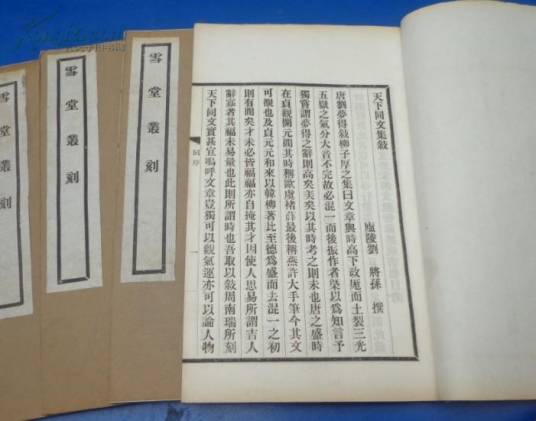 天下同文集敍
廬陵劉 將孫 撰
唐劉夢得敍柳子厚之集曰文章與時高下故厖而土裂三光
五嶽之氣分大音不完故必混一而後振作者榮以爲知言予
獨嘗謂夢得之辭則高矣美矣以其時考之則未也唐之盛時
在貞觀開元間其時稱歐虞褚薛最後稱燕許大手筆今其文
可槪也及貞元元和來以韓柳著比至德爲盛而去混一之初
則有間矣才未必皆福福亦自掩其才因使人思易所謂吉人
辭寡者其福未易量也此則所謂時也吾取以敍周南瑞所刻
天下同文實甚宜嗚呼文章豈獨可以觀氣運亦可以論人物
雪堂叢刻
雪堂叢刻
雪堂叢刻